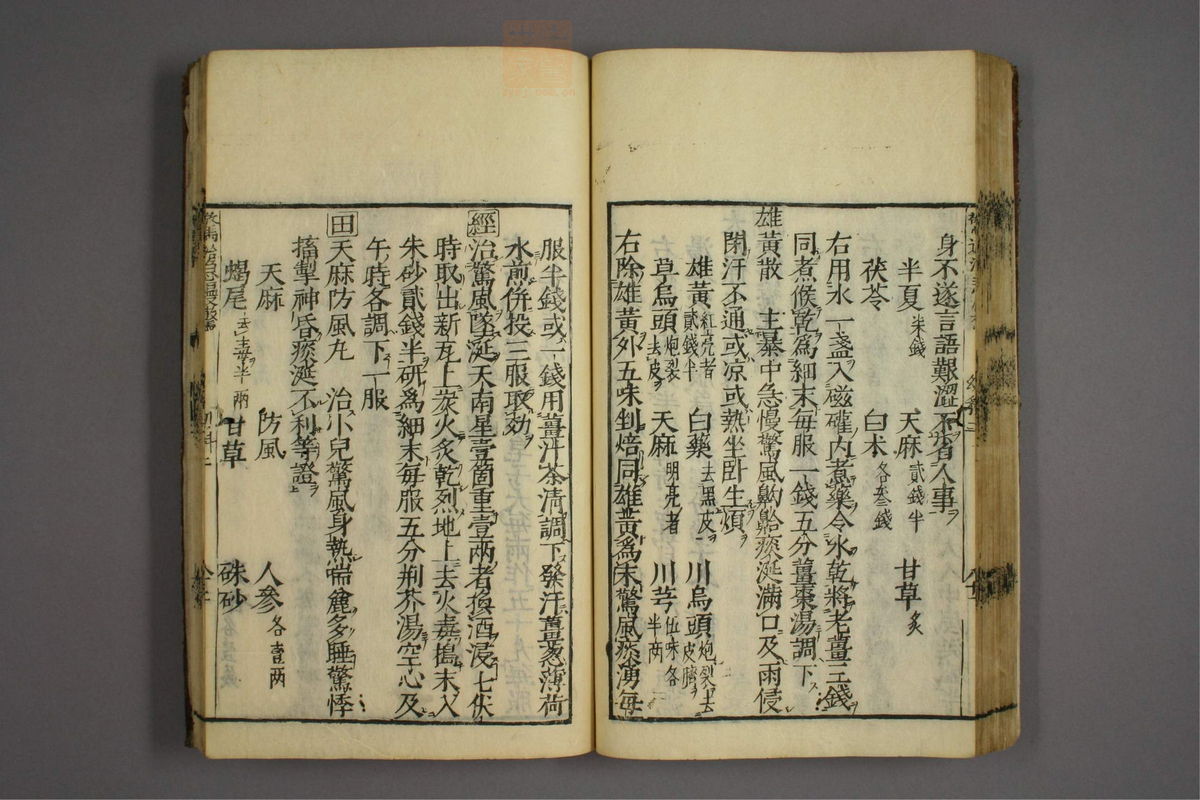 身不遂言語艱澀不省人事
半夏朱錢 天麻貳錢半 甘草炙
茯苓 白朮各叁錢
右用水一盞入磁礶内煮藥令水乾將老薑三錢
同煮候乾為細末每服一錢五分薑棗湯調下
雄黃散 主暴中急慢驚風齁䶎痰涎滿口及雨侵
閉汗不通或凉或熱坐卧生煩
雄黃紅亮者貳錢半 白藥去黑皮 川烏頭炮裂去皮臍
草烏頭炮裂去皮 天麻明亮者 川芎伍味各半两
右除雄黃外五味剉焙同雄黃為末驚風痰湧每
服半錢或一錢用薑汁茶清調下發汗薑葱薄荷
水煎併投三服取効
經 治驚風墜涎天南星壹箇重壹两者換酒浸七伏
時取出新瓦上炭火炙乾烈地上去火毒搗末入
朱砂貳錢半研為細末每服五分荆芥湯空心及
午時各調下一服
田 天麻防風丸 治小兒驚風身熱喘麄多睡驚悸
搐掣神昏痰涎不利等證
天麻 防風 人參各壹两
蝎尾去毒半兩 甘草 硃砂